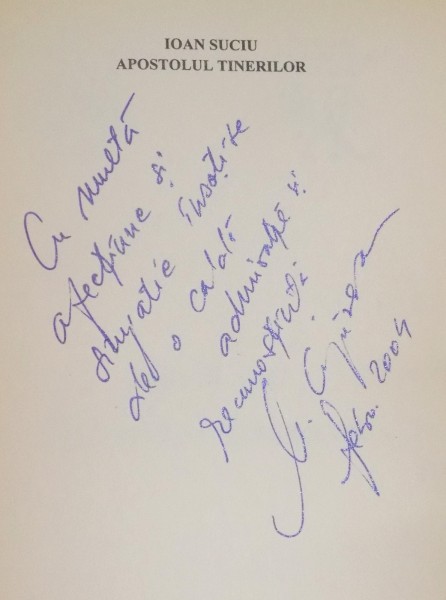 IOAN SUCIU
APOSTOLUL TINERILOR
Cu multă
afecțiune și
simpatie însoțite
de o caldă
admirație și
recunoștință
2004